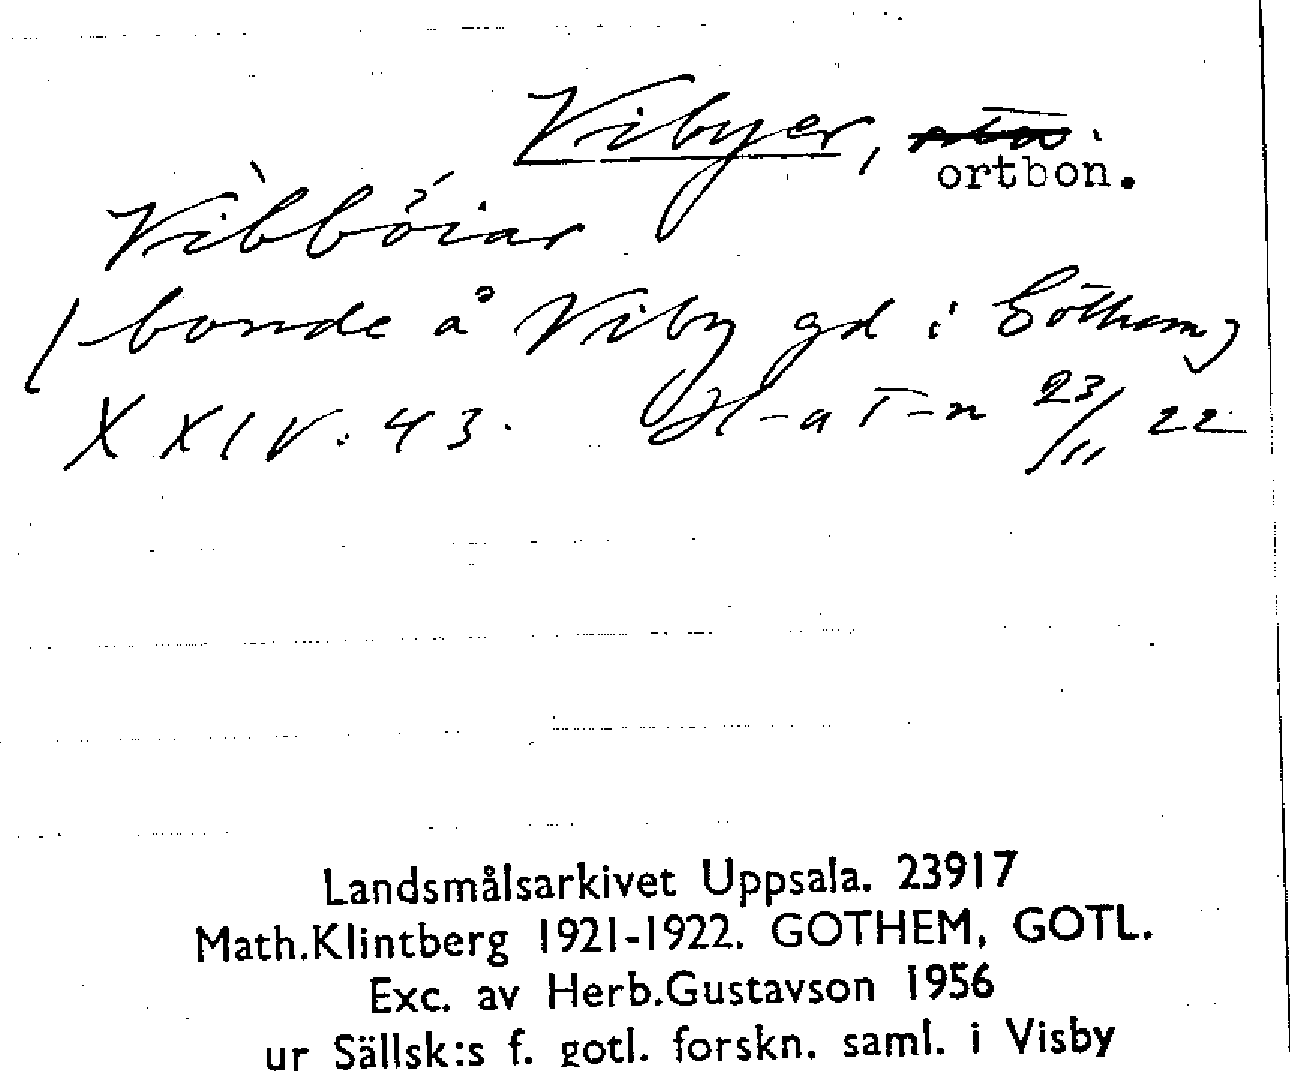 Vibyer,
ortbon.
Vibbóiar
(bonde å Viby gd i Gothem)
XXIV. 43. Ol-a T-n 23/11 22
Landsmålsarkivet Uppsala. 23917
Math.Klintberg 1921-1922. GOTHEM, GOTL.
Exc. av Herb.Gustavson 1956
ur Sällsk:s f. gotl. forskn. saml. i Visby